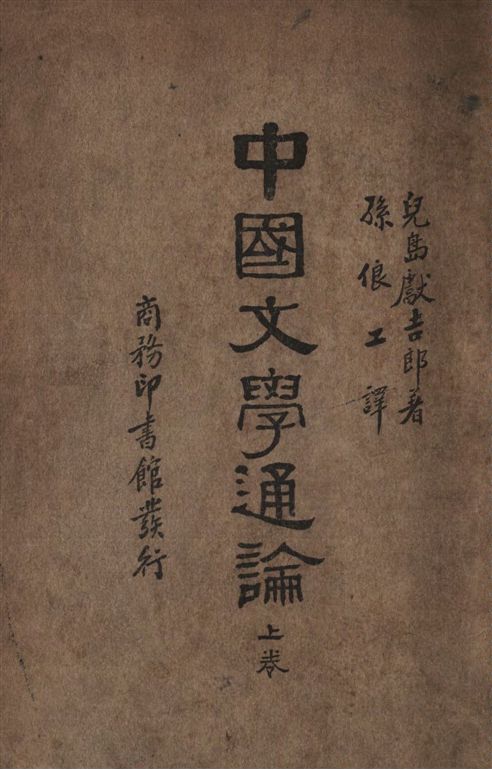 兒島獻吉郎著
孫俍工譯
中國文學通論
上卷
商務印書館發行